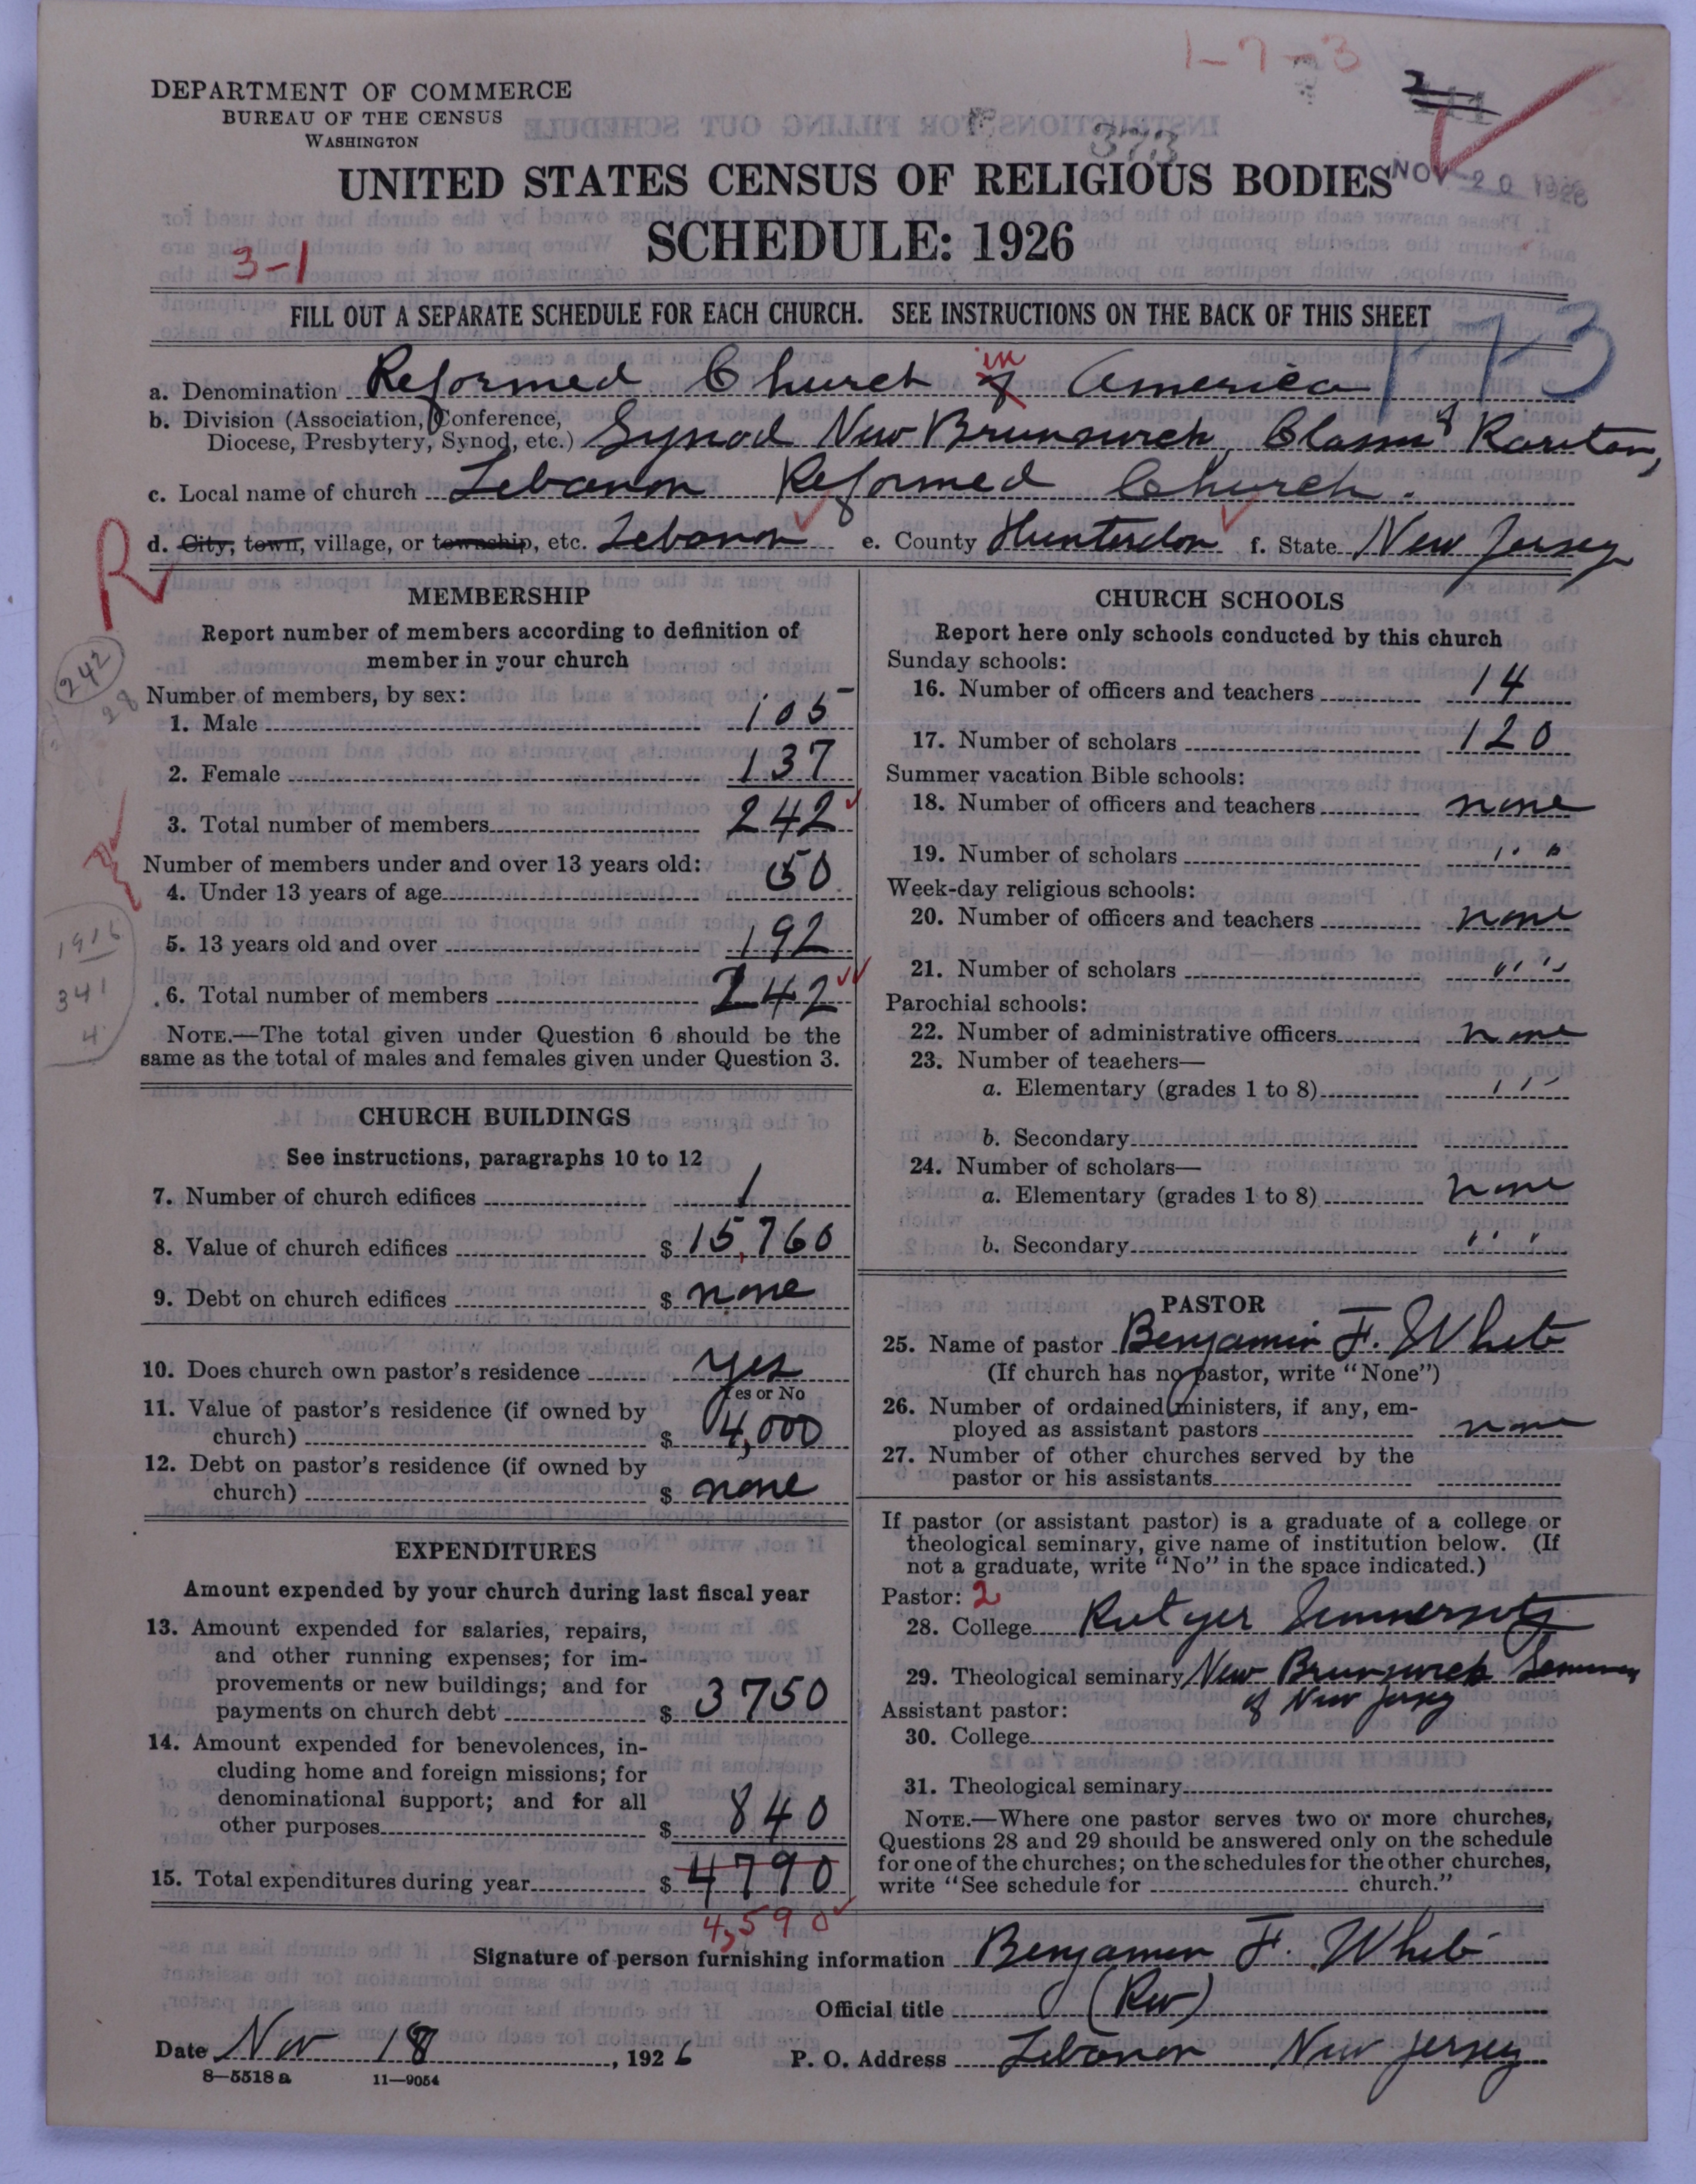 1-7-3
2
111
DEPARTMENT OF COMMERCE
BUREAU OF THE CENSUS
WASHINGTON
373
UNITED STATES CENSUS OF RELIGIOUS BODIES
NOV 20 1926
SCHEDULE: 1926
3-1
FILL OUT A SEPARATE SCHEDULE FOR EACH CHURCH. SEE INSTRUCTIONS ON THE BACK OF THIS SHEET
1-7-3
a. Denomination Reformed Church of in America
b. Division (Association, Conference, Diocese, Presbytery, Synod, etc.) Synod New Brunswick, Classis of Raritan,
c. Local name of church Lebanon Reformed Church.
d. City, town, village, or township, etc. Lebanon e. County Hunterdon f. State New Jersey
R
MEMBERSHIP
Report number of members according to definition of
member in your church
242
28
Number of members, by sex:
1. Male 105
2. Female 137
3. Total number of members 242
Number of members under and over 13 years old:
4. Under 13 years of age 50
5. 13 years old and over 192
1916
341
4
6. Total number of members 242
NOTE.—The total given under Question 6 should be the
same as the total of males and females given under Question 3.
CHURCH BUILDINGS
See instructions, paragraphs 10 to 12
7. Number of church edifices 1
8. Value of church edifices $ 15,760
9. Debt on church edifices $ none
10. Does church own pastor's residence yes
Yes or No
11. Value of pastor's residence (if owned by
church) $ 4,000
12. Debt on pastor's residence (if owned by
church) $ none
EXPENDITURES
Amount expended by your church during last fiscal year
13. Amount expended for salaries, repairs,
and other running expenses; for im-
provements or new buildings; and for
payments on church debt $ 3750
14. Amount expended for benevolences, in-
cluding home and foreign missions; for
denominational support; and for all
other purposes $ 840
15. Total expenditures during year $ 4790
4,590
CHURCH SCHOOLS
Report here only schools conducted by this church
Sunday schools:
16. Number of officers and teachers 14
17. Number of scholars 120
Summer vacation Bible schools:
18. Number of officers and teachers none
19. Number of scholars " "
Week-day religious schools:
20. Number of officers and teachers none
21. Number of scholars " "
Parochial schools:
22. Number of administrative officers none
23. Number of teachers—
a. Elementary (grades 1 to 8) " "
b. Secondary
24. Number of scholars—
a. Elementary (grades 1 to 8) none
b. Secondary " "
PASTOR
25. Name of pastor Benjamin F. White
(If church has no pastor, write "None")
26. Number of ordained ministers, if any, em-
ployed as assistant pastors none
27. Number of other churches served by the
pastor or his assistants
If pastor (or assistant pastor) is a graduate of a college or
theological seminary, give name of institution below. (If
not a graduate, write "No" in the space indicated.)
Pastor: 2
28. College
29. Theological seminary New Brunswick Seminary
of New Jersey
Assistant pastor:
30. College
31. Theological seminary
NOTE.—Where one pastor serves two or more churches,
Questions 28 and 29 should be answered only on the schedule
for one of the churches; on the schedules for the other churches,
write "See schedule for church."
Signature of person furnishing information Benjamin F. White
Official title (Rev)
Date Nov 18, 1926
P. O. Address Lebanon New Jersey
8—5518 a 11—9054